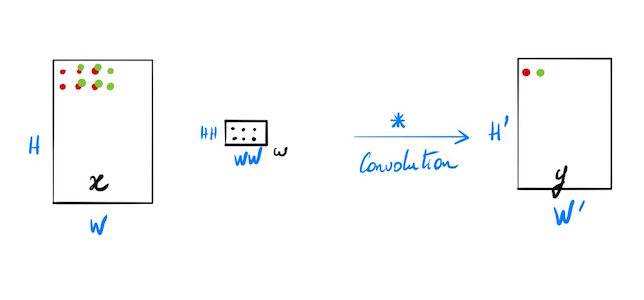 H
x
W
HH
WW
w
*
Convolution
H'
y
W'